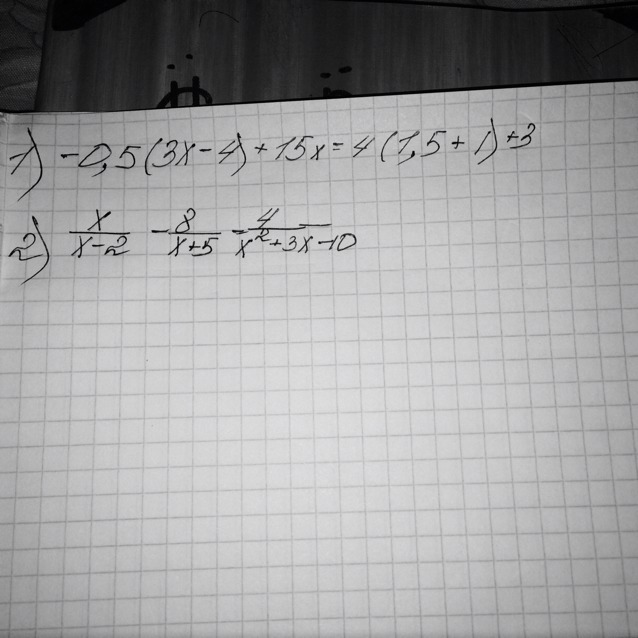 1) -0,5(3x-4)+15x=4(1,5+1)+3
2) x/(x-2) - 8/(x+5) - 4/(x²+3x-10)